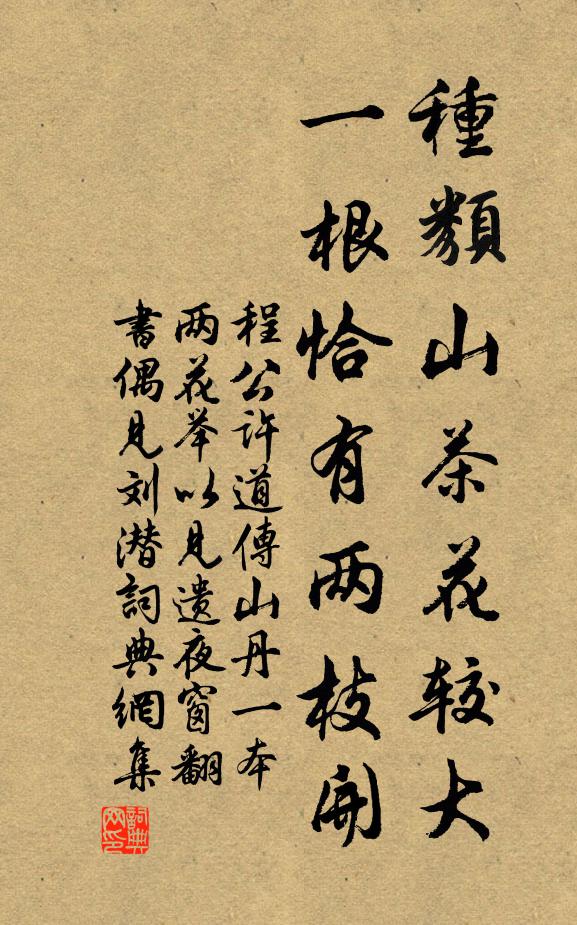 種類山茶花较大
一根恰有两枝開
程公許道傳山丹一本
两花举以見遗夜窗翻
書偶見刘潜詞典網集
詞典网印